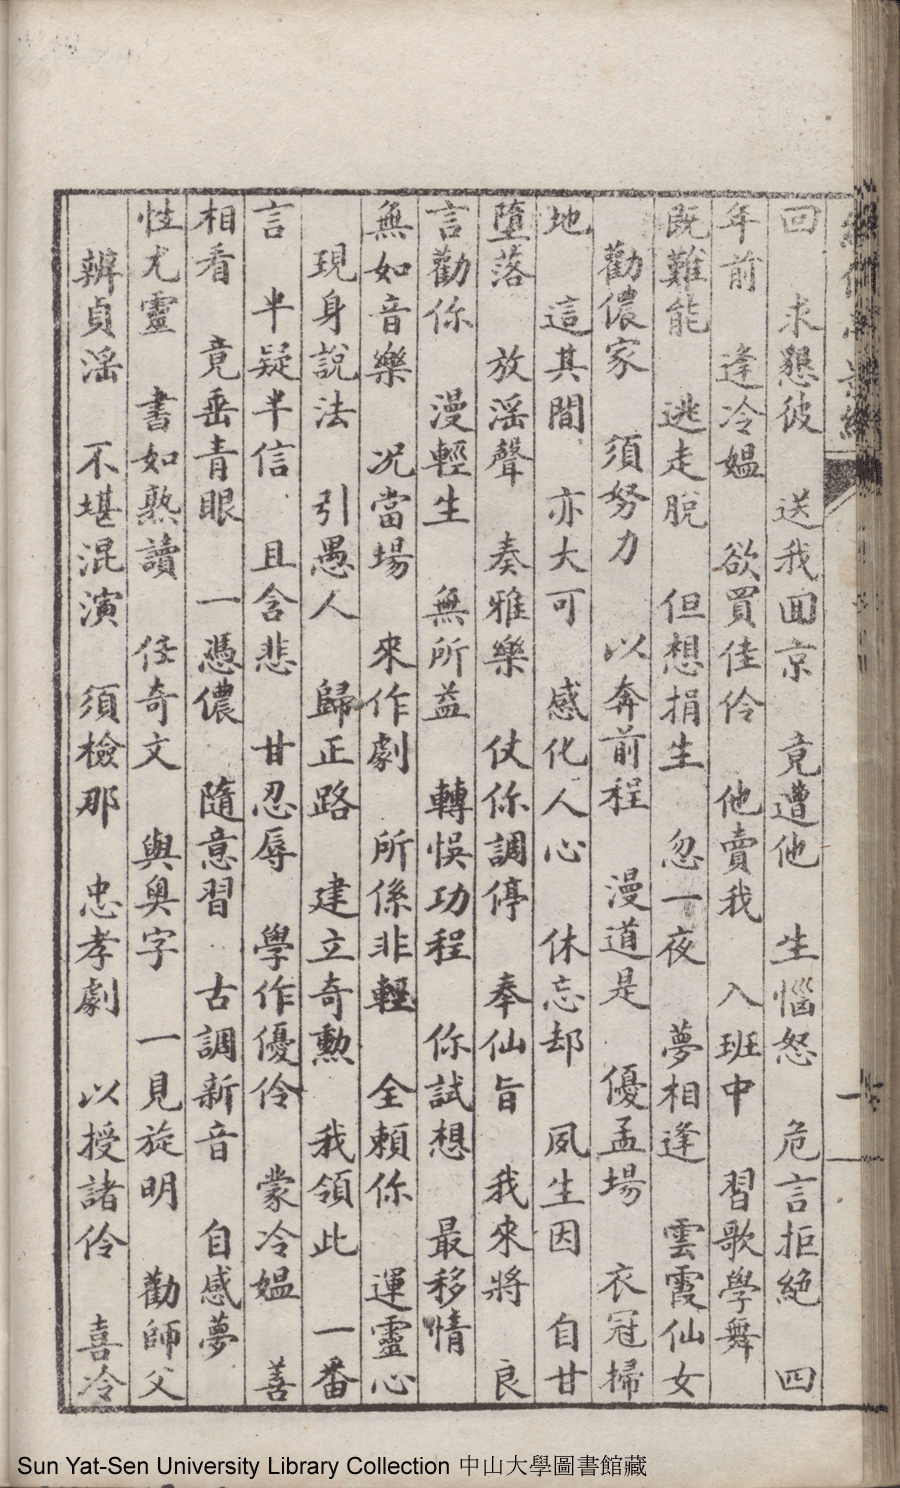 回　求懇彼　送我囬京　竟遭他　生惱怒　危言拒絕　四
年前　逢冷媼　欲買佳伶　他賣我　入班中　習歌學舞
既難能　逃走脫　但想捐生　忽一夜　夢相逢　雲霞仙女
勸儂家　須努力　以奔前程　漫道是　優孟場　衣冠掃
地　這其間　亦大可　感化人心　休忘却　夙生因　自甘
墮落　放淫聲　奏雅樂　仗你調停　奉仙旨　我來將　良
言勸你　漫輕生　無所益　轉悞功程　你試想　最移情
無如音樂　况當場　來作劇　所係非輕　全賴你　運靈心
現身說法　引愚人　歸正路　建立奇勲　我領此　一番
言　半疑半信　且含悲　甘忍辱　學作優伶　蒙冷媼　善
相看　竟垂青眼　一憑儂　隨意習　古調新音　自感夢
性尤靈　書如熟讀　任奇文　與奥字　一見旋明　勸師父
辨貞淫　不堪混演　須檢那　忠孝劇　以授諸伶　喜冷
Sun Yat-Sen University Library Collection 中山大學圖書館藏